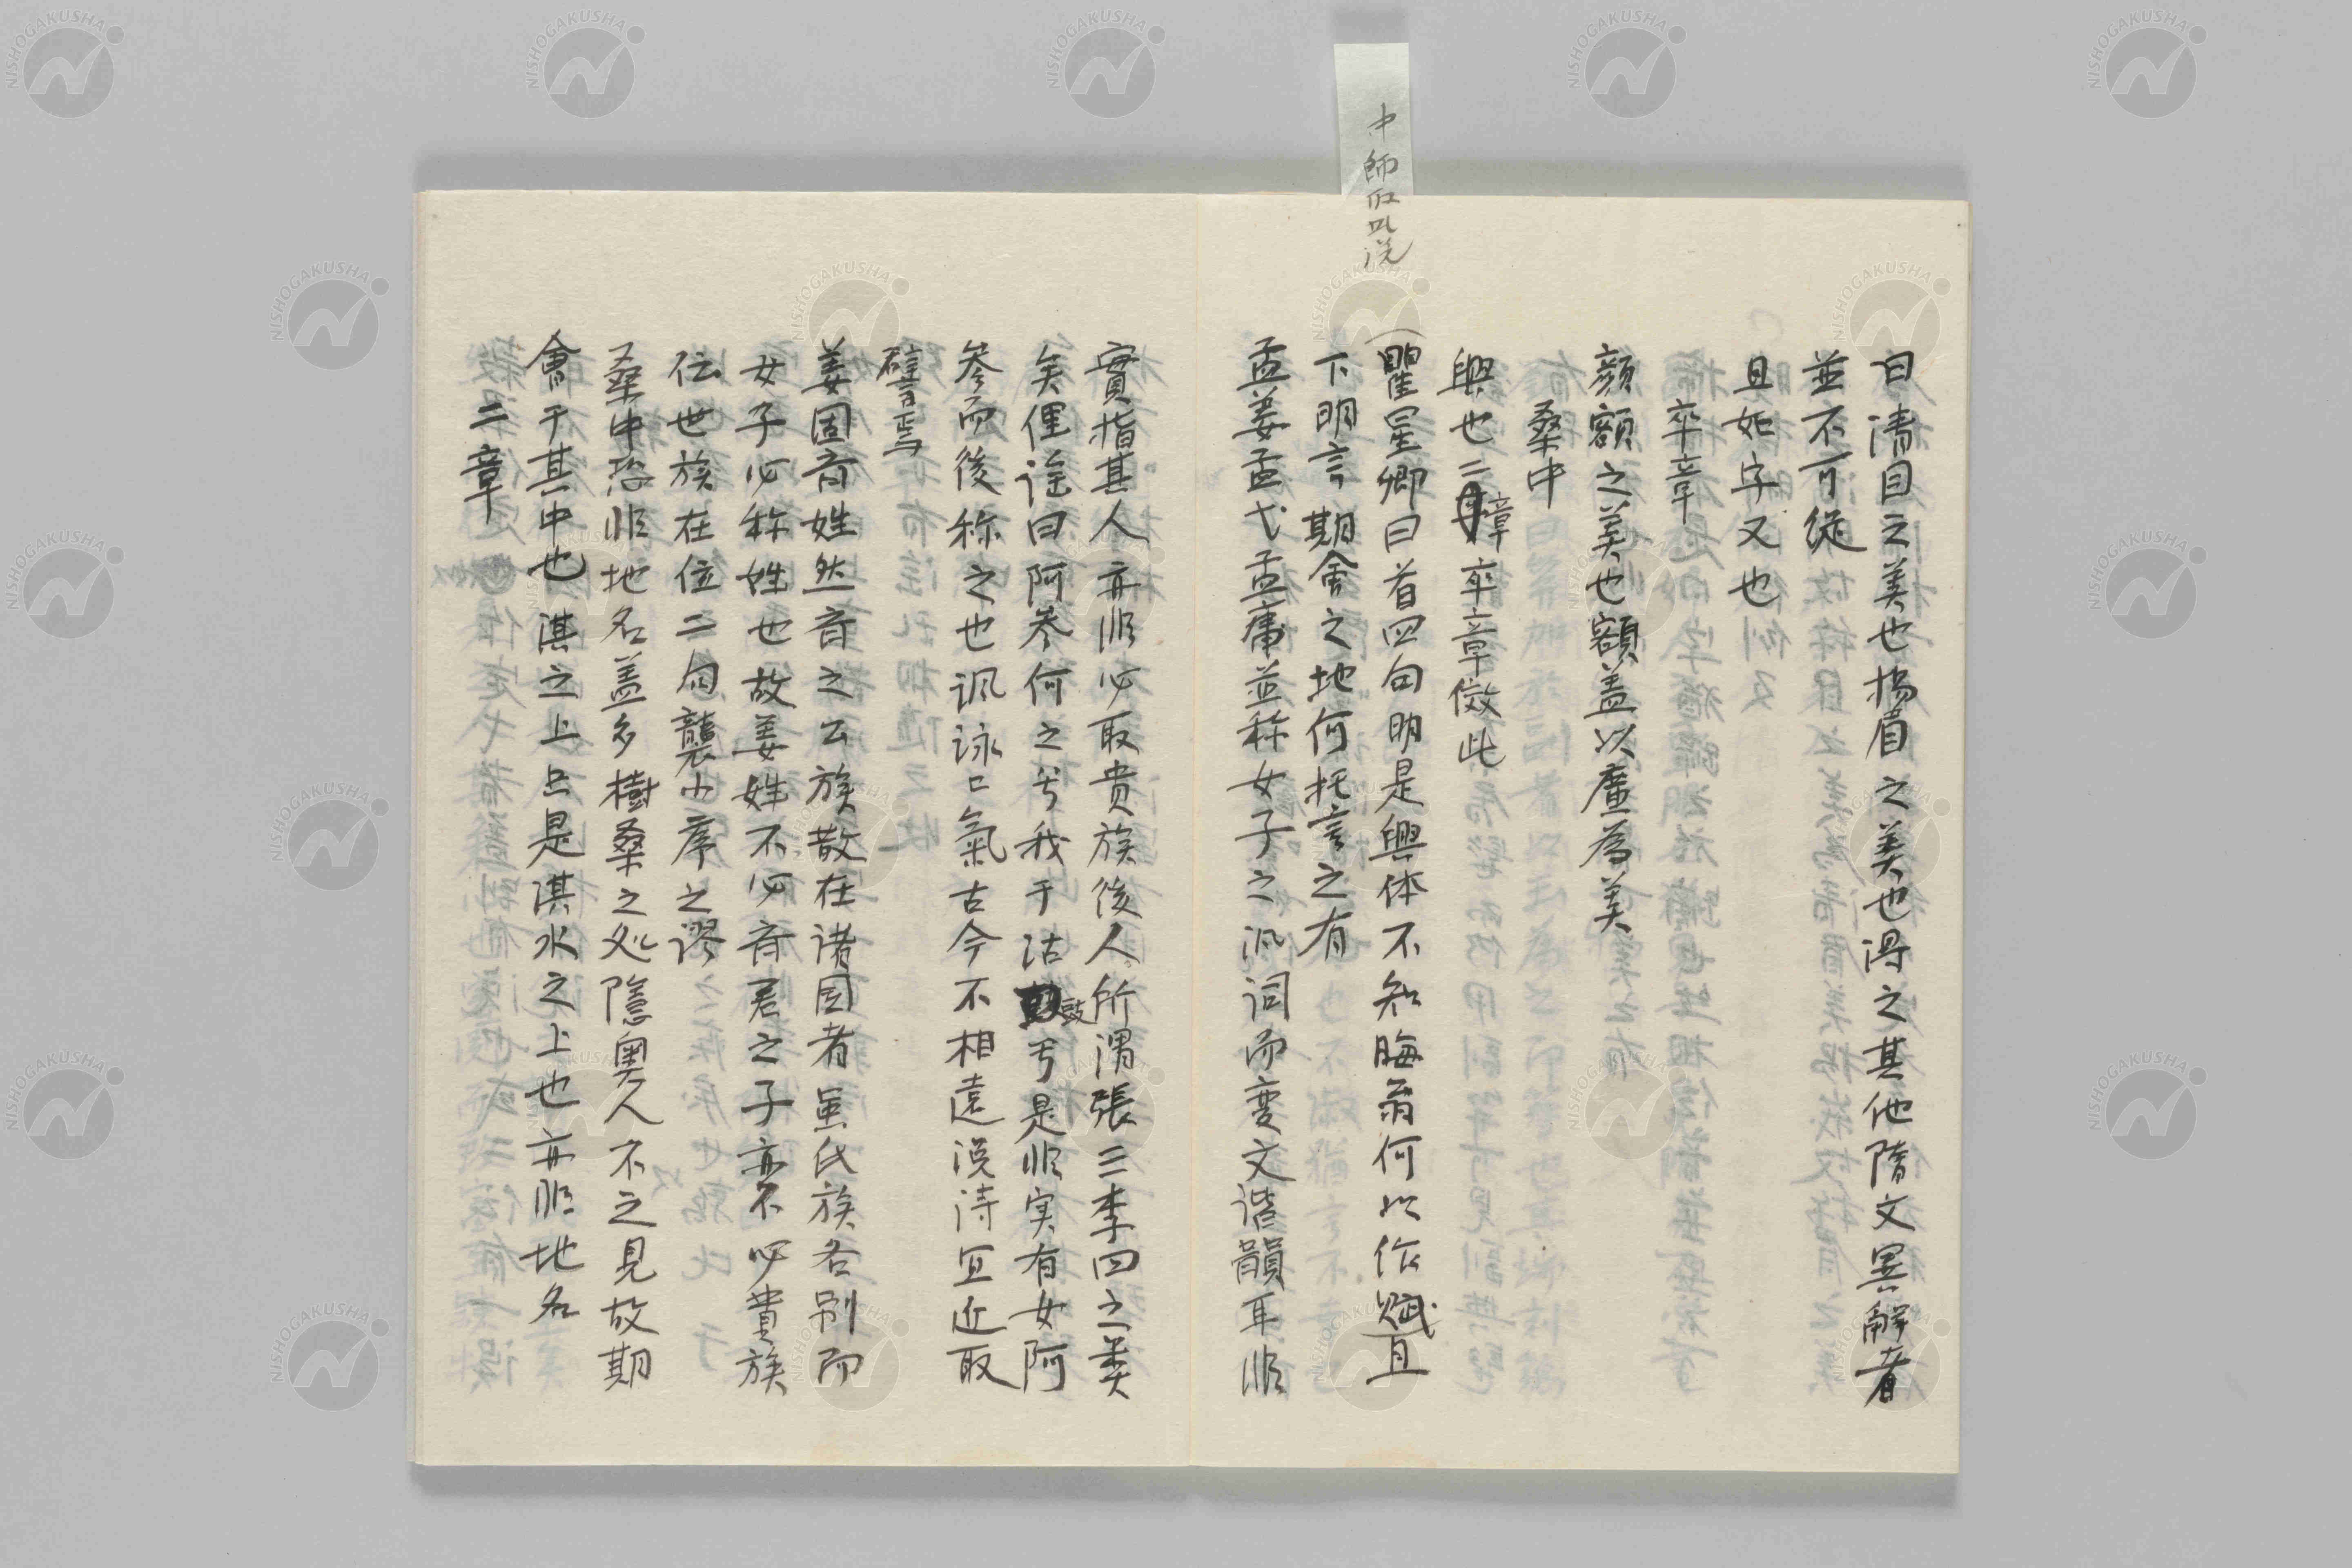 中師取此説
曰清目之美也揚眉之美也得之其他隋文異解者
並不可従
且如字又也
卒章
顔額之美也額盖以廣為美
桑中
興也二章卒章倣此
瞿星卿曰首四句明是興体不知晦翁何以作賦且
下明言期會之地何托言之有
孟姜孟弋孟庸並称女子之汎詞而変文諧韻耳非
實指其人亦非必取貴族後人所謂張三李四之類
矣俚謡曰阿参何之兮我于沽豉兮是非実有女阿
参而後称之也諷詠口氣古今不相遠説詩宜近取
譬焉
姜固斉姓然斉之公族散在諸国者虽氏族各别而
女子必称姓也故姜姓不必斉君之子亦不必貴族
伝世族在位二句襲小序之謬
桑中恐非地名盖多樹桑之処隱奥人不之見故期
會于其中也淇之上只是淇水之上也亦非地名
二章
NISHOGAKUSHA